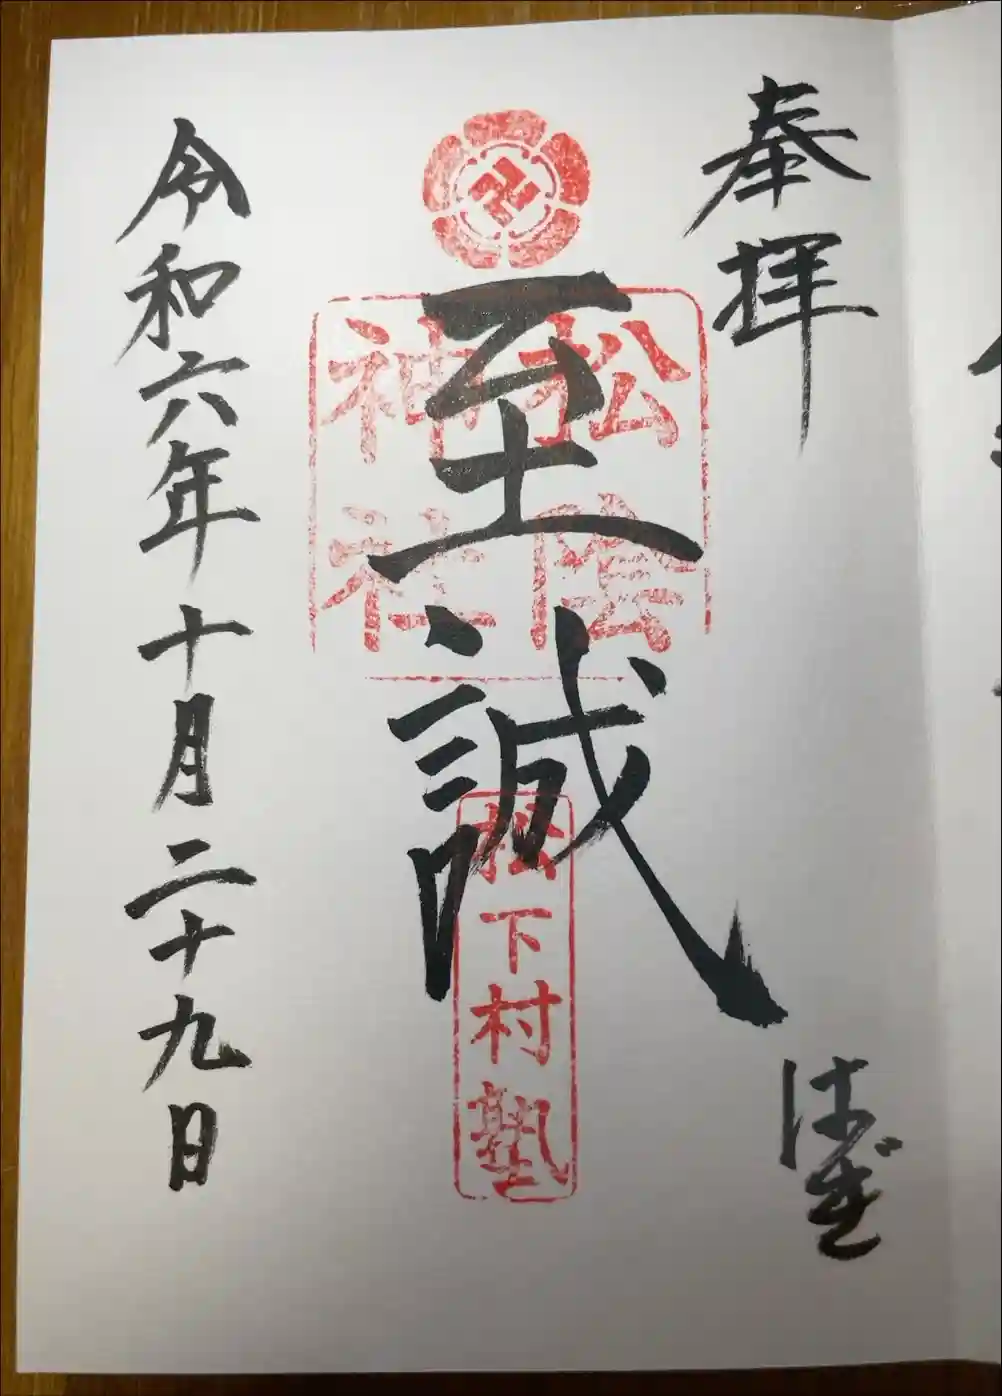 奉拝
はぎ
至誠
松陰
神社
松下村塾
令和六年十月二十九日